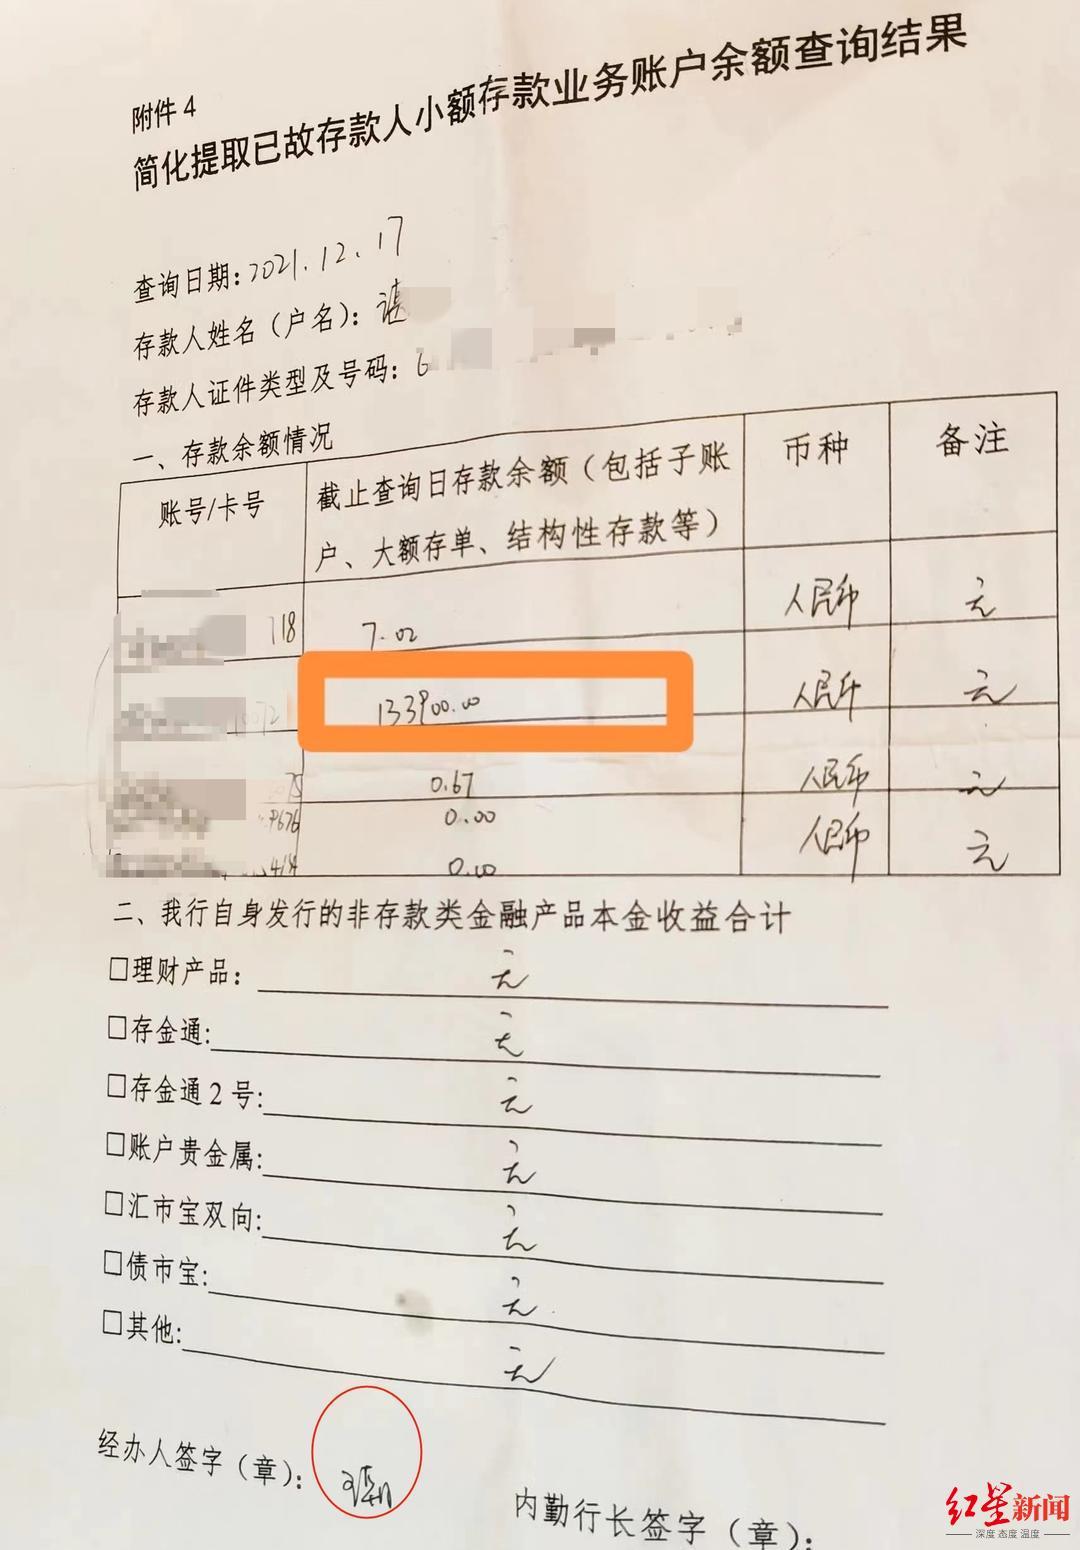 附件4
简化提取已故存款人小额存款业务账户余额查询结果
查询日期:2021.12.17
存款人姓名（户名）：谌
存款人证件类型及号码：6
一、存款余额情况
账号/卡号 截止查询日存款余额（包括子账户、大额存单、结构性存款等） 币种 备注
718 7.02 人民币 元
10072 133900.00 人民币 元
75 0.67 人民币 元
9676 0.00 人民币 元
414 0.00
二、我行自身发行的非存款类金融产品本金收益合计
□理财产品： 元
□存金通: 元
□存金通2号: 元
□账户贵金属: 元
□汇市宝双向: 元
□债市宝: 元
□其他: 元
经办人签字（章）：
内勤行长签字（章）：
红星新闻
深度 态度 温度